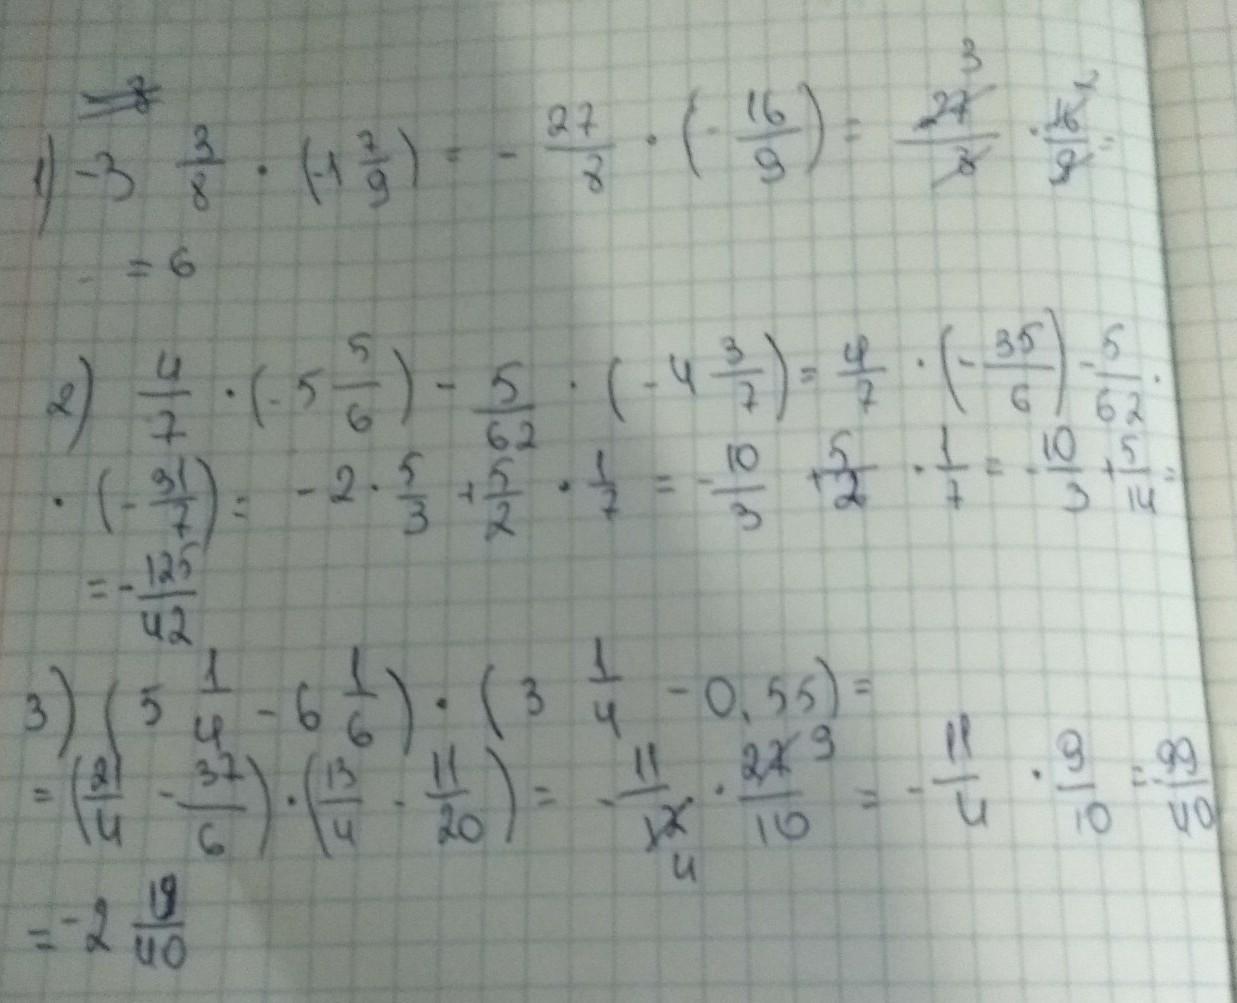 1) -3 3/8 · (-1 7/9) = - 27/8 · (- 16/9) = 27/8 3 · 16/9 2 =
= 6
2) 4/7 · (-5 5/6) - 5/62 · (-4 3/7) = 4/7 · (- 35/6) - 5/62 ·
· (- 31/7) = -2 · 5/3 + 5/2 · 1/7 = - 10/3 + 5/2 · 1/7 = - 10/3 + 5/14 =
= - 125/42
3) (5 1/4 - 6 1/6) · (3 1/4 - 0,55) =
= (21/4 - 37/6) · (13/4 - 11/20) = - 11/12 4 · 27/10 9 = - 11/4 · 9/10 = - 99/40
= -2 19/40